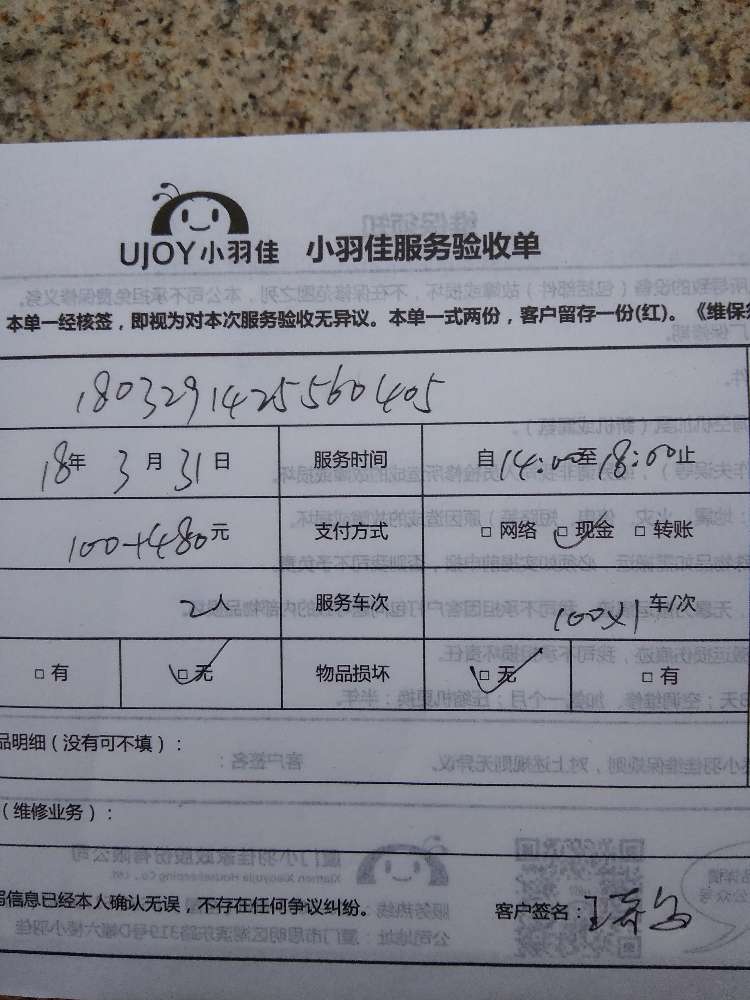 UJOY小羽佳 小羽佳服务验收单
本单一经核签，即视为对本次服务验收无异议。本单一式两份，客户留存一份(红)。《维保
1803291425560405
18年 3月 31日 服务时间 自14:00至18:00止
100+480元 支付方式 □ 网络 □ 现金 □ 转账
2人 服务车次 100×1 车/次
□ 有 □ 无 物品损坏 □ 无 □ 有
品明细（没有可不填）：
（维修业务）：
写信息已经本人确认无误，不存在任何争议纠纷。 客户签名：王